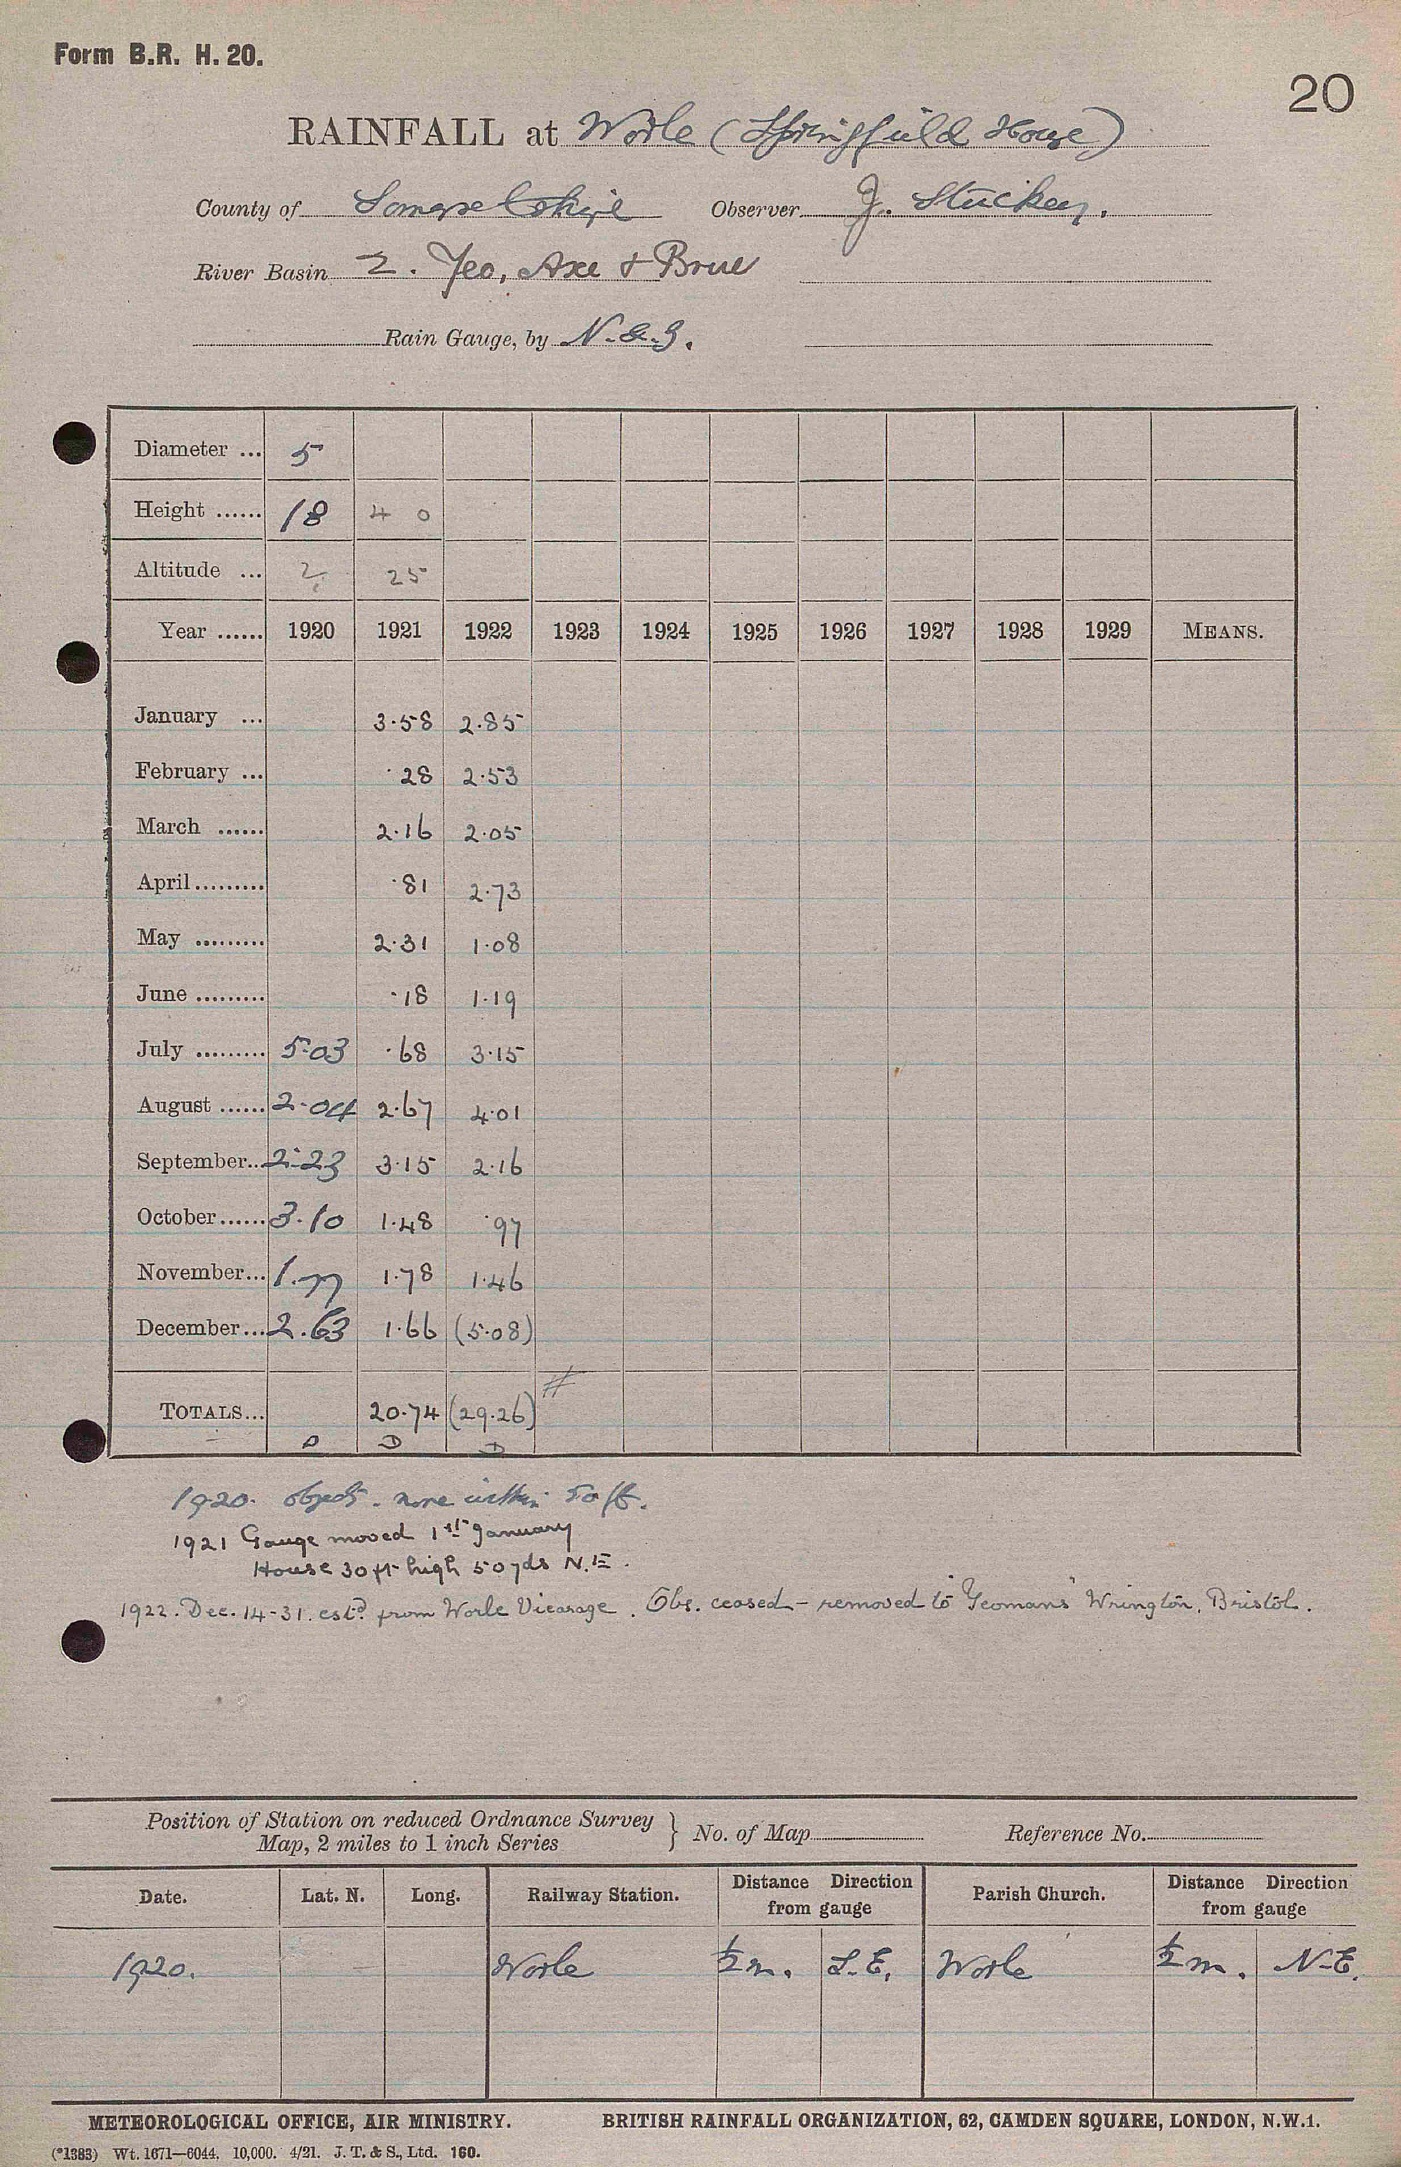 Form B.R. H. 20.
20
RAINFALL at Worle (Springfield House)
County of Somersetshire Observer J. Stuckey.
River Basin 2. Yeo, Axe & Brue
Rain Gauge, by N. & Z.
Diameter ... 5
Height ...... 18 4 0
Altitude ... ? 25
Year ...... 1920 1921 1922 1923 1924 1925 1926 1927 1928 1929 MEANS.
January ... 3.58 2.85
February ... .28 2.53
March ...... 2.16 2.05
April......... .81 2.73
May ......... 2.31 1.08
June ......... .18 1.19
July ......... 5.03 .68 3.15
August ...... 2.04 2.67 4.01
September.. 2.23 3.15 2.16
October...... 3.10 1.48 .97
November... 1.77 1.78 1.46
December... 2.63 1.66 (5.08)
TOTALS... 20.74 (29.26) #
D D D
1920. objects. none within 50 ft.
1921 Gauge moved 1st January
House 30 ft high 50 yds N.E.
1922. Dec. 14-31. estd from Worle Vicarage. Obs. ceased - removed to "Yeomans" Wrington, Bristol.
Position of Station on reduced Ordnance Survey
Map, 2 miles to 1 inch Series } No. of Map Reference No.
Date. Lat. N. Long. Railway Station. Distance Direction from gauge Parish Church. Distance Direction from gauge
1920. Worle ½ m. S.E. Worle ½ m. N-E.
METEOROLOGICAL OFFICE, AIR MINISTRY. BRITISH RAINFALL ORGANIZATION, 62, CAMDEN SQUARE, LONDON, N.W.1.
(*1383) Wt. 1671—6044. 10,000. 4/21. J. T. & S., Ltd. 160.